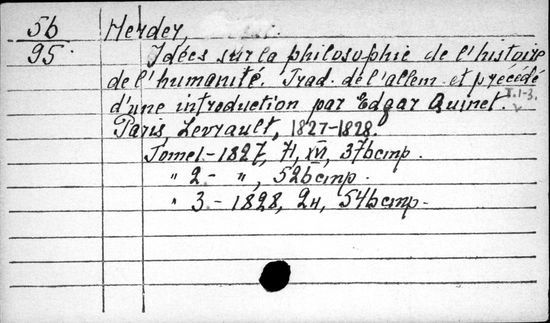 56
95
Herder,
Idées sur la philosophie de l'histoire
de l'humanité. Trad. de l'allem. et précédé
d'une introduction par Edgar Quinet.
т.1-3.
Paris Levrault, 1827-1828.
Tome 1 - 1827, 71, XVI, 376 стр.
" 2 - ", 526 стр.
" 3 - 1828, 2н, 546 стр.